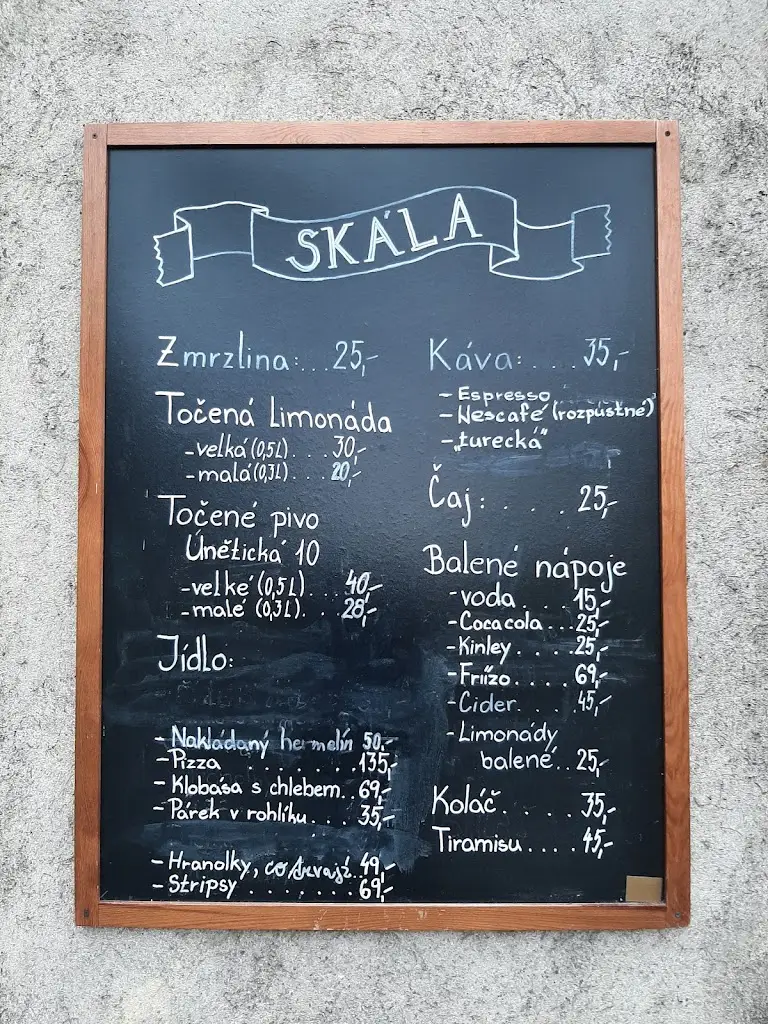 SKÁLA
Zmrzlina:...25,-
Točená Limonáda
-velká (0,5L)....30,-
-malá (0,3L)....20,-
Točené pivo
Únětická 10
-velké (0,5L)....40,-
-malé (0,3L)....28,-
Jídlo:
- Nakládaný hermelín 50,-
- Pizza ........135,-
- Klobása s chlebem..69,-
- Párek v rohlíku....35,-
- Hranolky, ..49,-
- Stripsy ......69,-
Káva:....35,-
- Espresso
- Nescafé (rozpustné)
- „turecká“
Čaj:....25,-
Balené nápoje
-voda....15,-
-Coca cola...25,-
-Kinley.....25,-
-Friízo....69,-
-Cider....45,-
-Limonády
balené..25,-
Koláč....35,-
Tiramisu....45,-